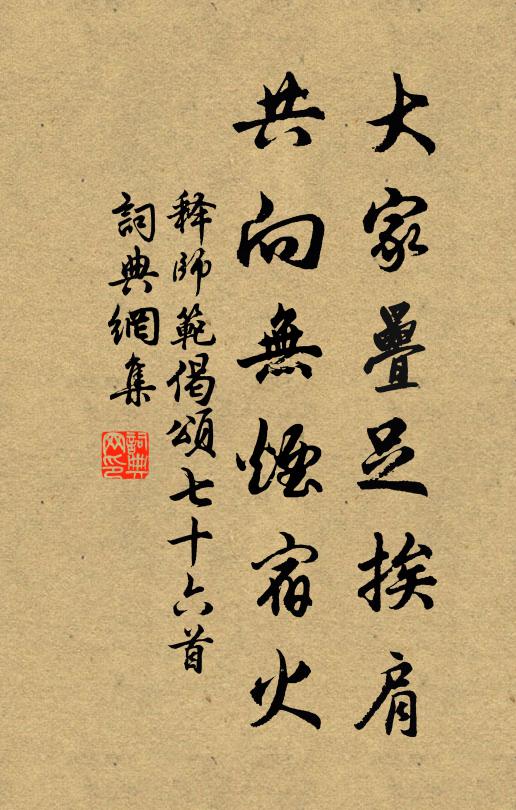 大家疊足挨肩
共向無煙宿火
释師範偈頌七十六首
詞典網集
詞典网印